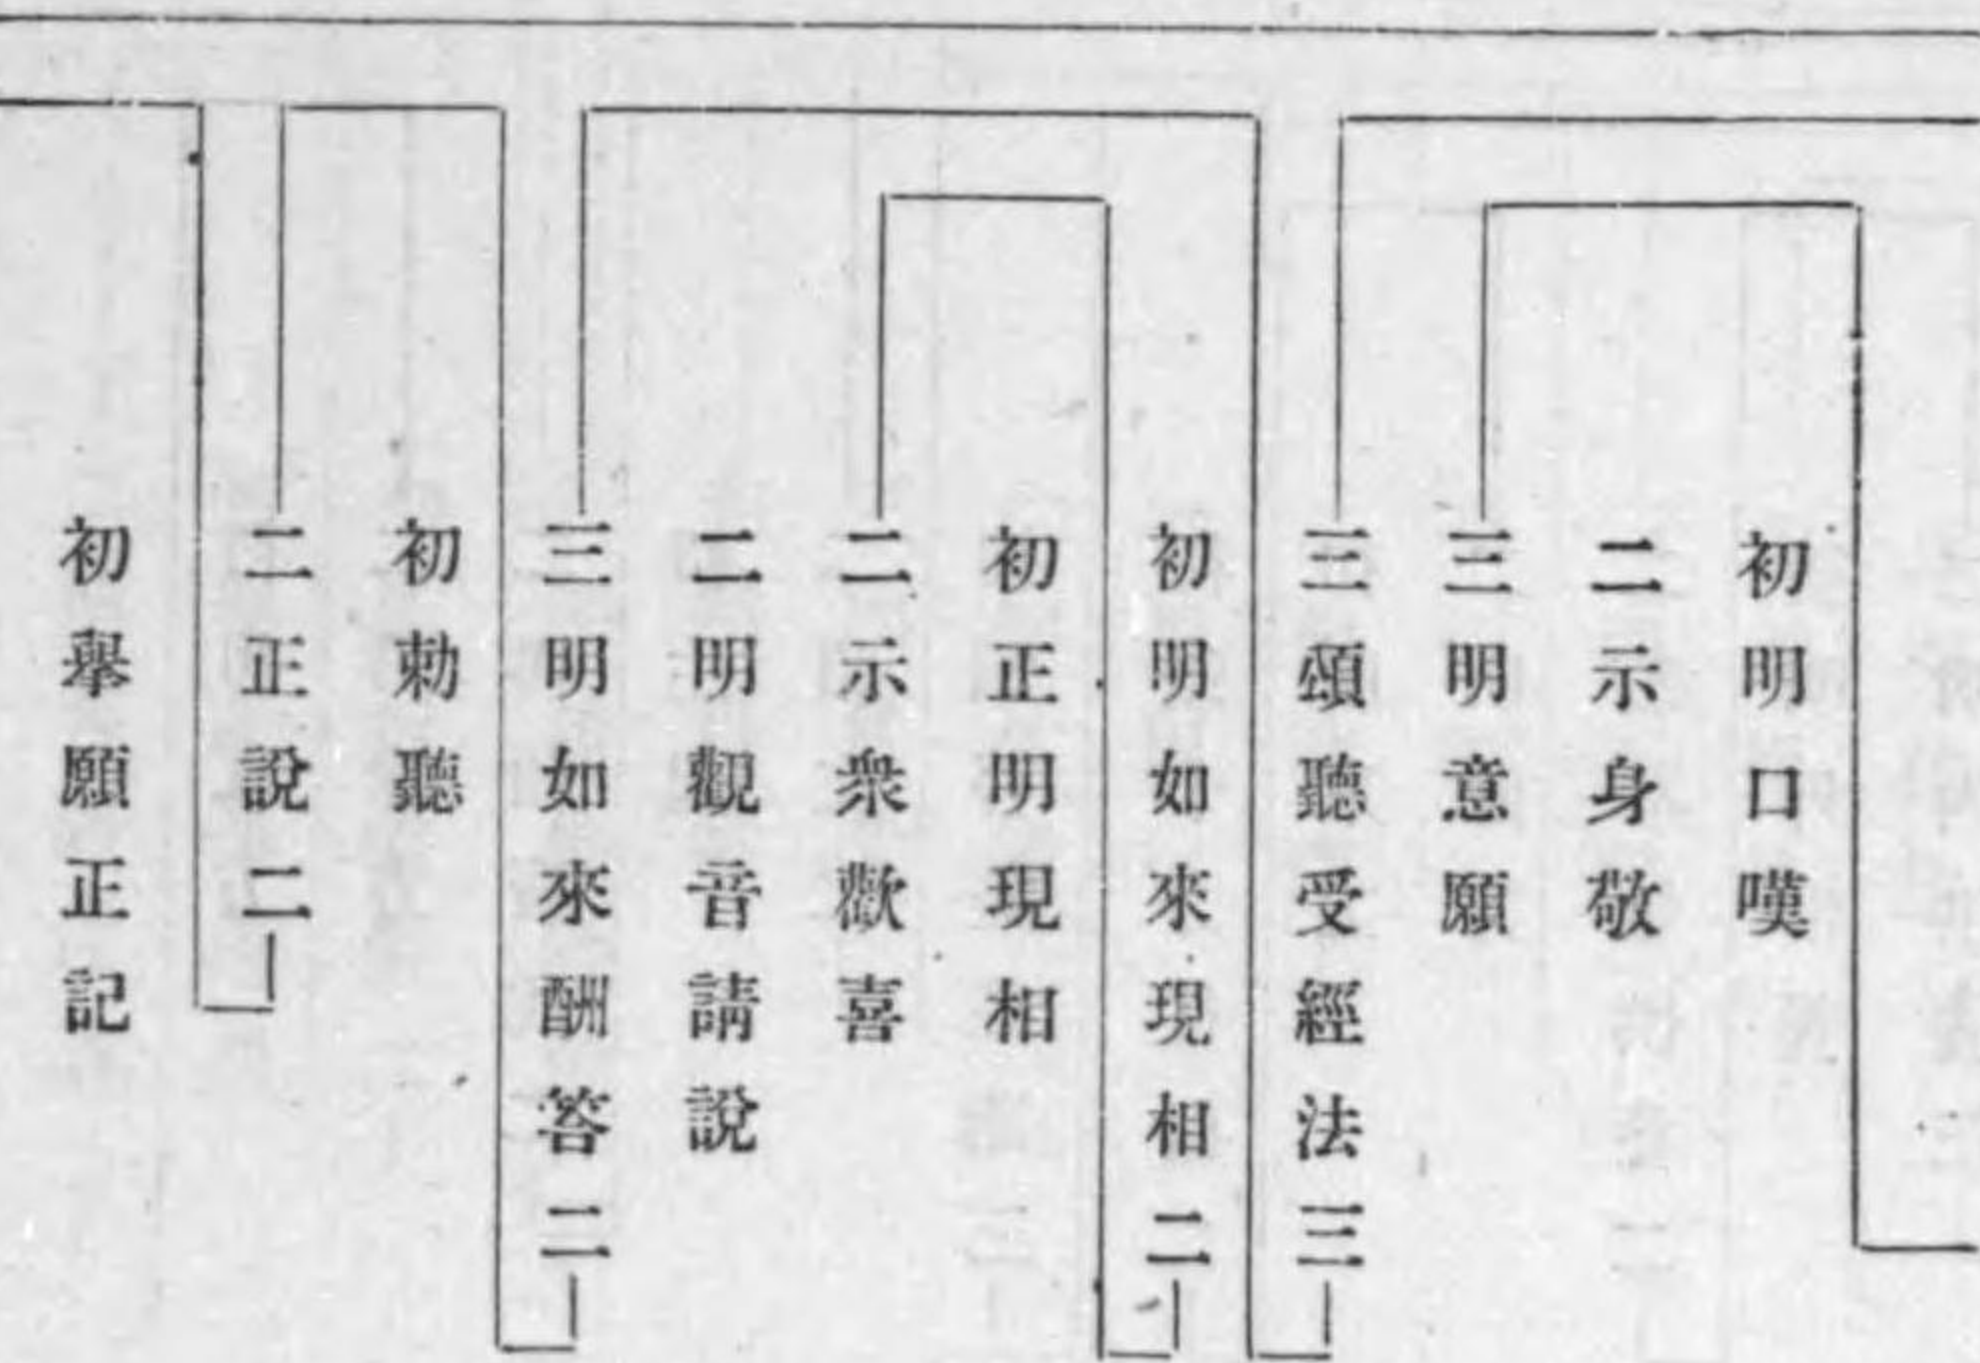 初明口嘆
二示身敬
三明意願
三頌聽受經法三
初明如來現相二
初正明現相
二示衆歡喜
二明觀音請說
三明如來酬答二
初勅聽
二正說二
初舉願正記